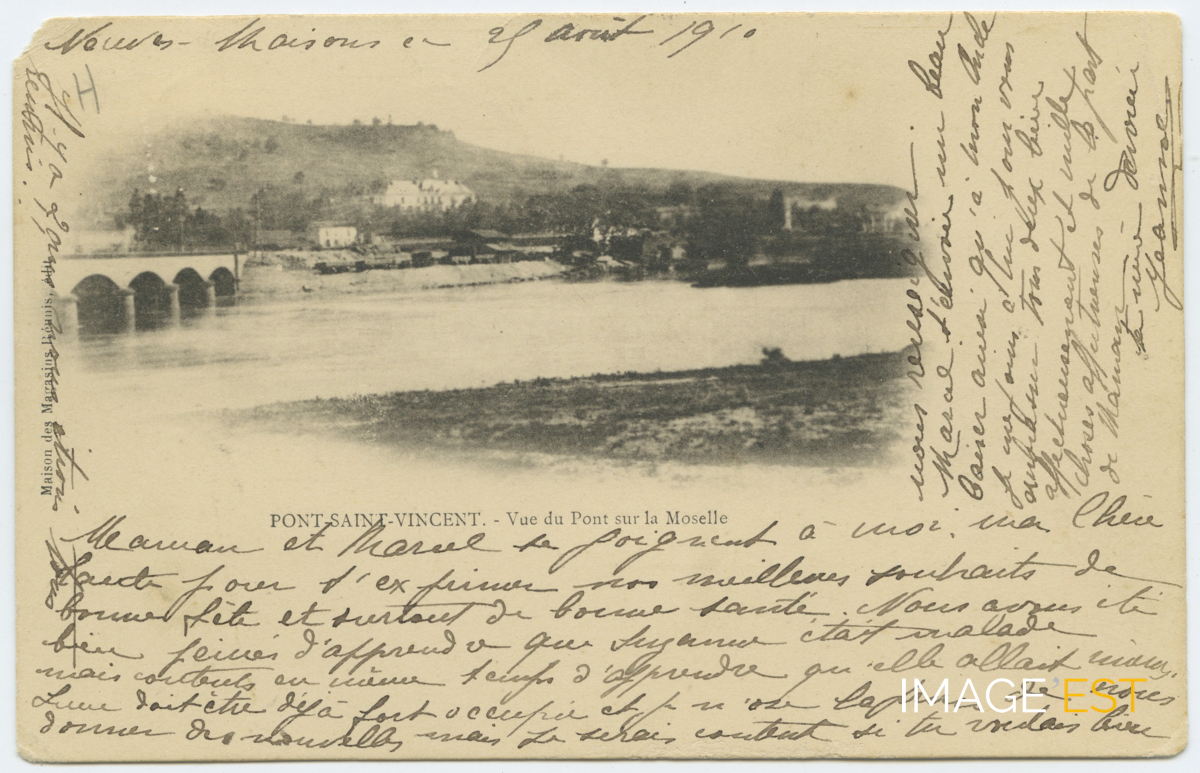 Neuves-Maisons le 25 août 1910
H
PONT-SAINT-VINCENT. - Vue du Pont sur la Moselle
Maison des Magasins Réunis,
Maman et Marcel se joignent à moi ma Chère
tante pour t'exprimer nos meilleurs souhaits de
bonne fête et surtout de bonne santé. Nous avons été
bien peinés d'apprendre que Suzanne était malade
mais contents en même temps d'apprendre qu'elle allait mieux,
doit être déjà fort occupée et je n'ose la de nous
donner des nouvelles mais je serais content si tu voulais bien
nous renseigner.
Marcel t'envoie un beau
baiser ainsi qu'à mon Oncle
je me joins à lui pour vous
embrasser tous deux bien
affectueusement et mille
choses affectueuses de la part
de Maman
ta nièce dévouée
Jeanne
Il y a 2 jours nous étions tous
réunis.
IMAGE EST